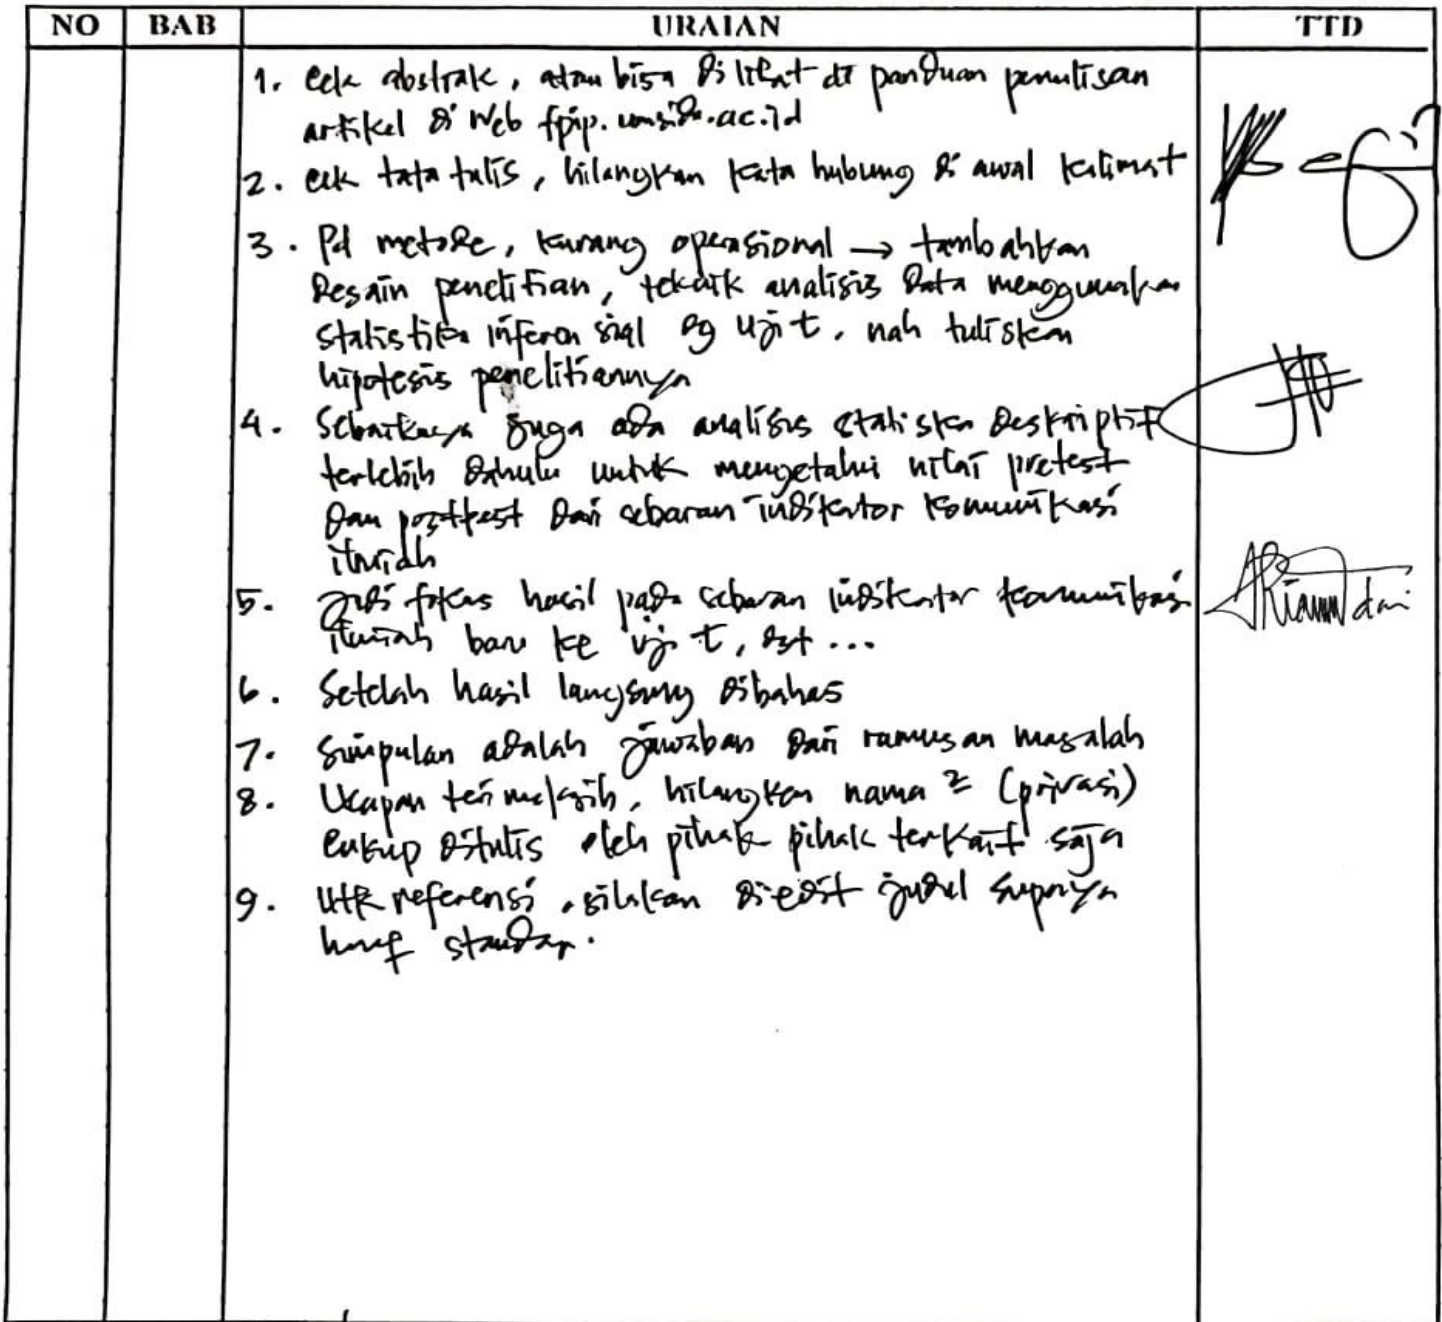 NO BAB URAIAN TTD
1. Cek abstrak, atau bisa dilihat di panduan penulisan
artikel di Web fpip.umsida.ac.id
2. cek tata tulis, hilangkan kata hubung di awal kalimat
3. Pd metode, kurang operasional → tambahkan
desain penelitian, teknik analisis data menggunakan
statistika inferensial dg uji t, nah tuliskan
hipotesis penelitiannya
4. Sebaiknya juga ada analisis statistka deskriptif
terlebih dahulu untuk mengetahui nilai pretest
dan posttest dari sebaran indikator komunikasi
ilmiah
5. Jadi fokus hasil pada sebaran indikator komunikasi
ilmiah baru ke uji t, dst ...
6. Setelah hasil langsung dibahas
7. Simpulan adalah jawaban dari rumusan masalah
8. Ucapan terimakasih, hilangkan nama 2 (privasi)
cukup ditulis oleh pihak pihak terkait saja
9. utk referensi, silakan diedit judul supaya
huruf standar.